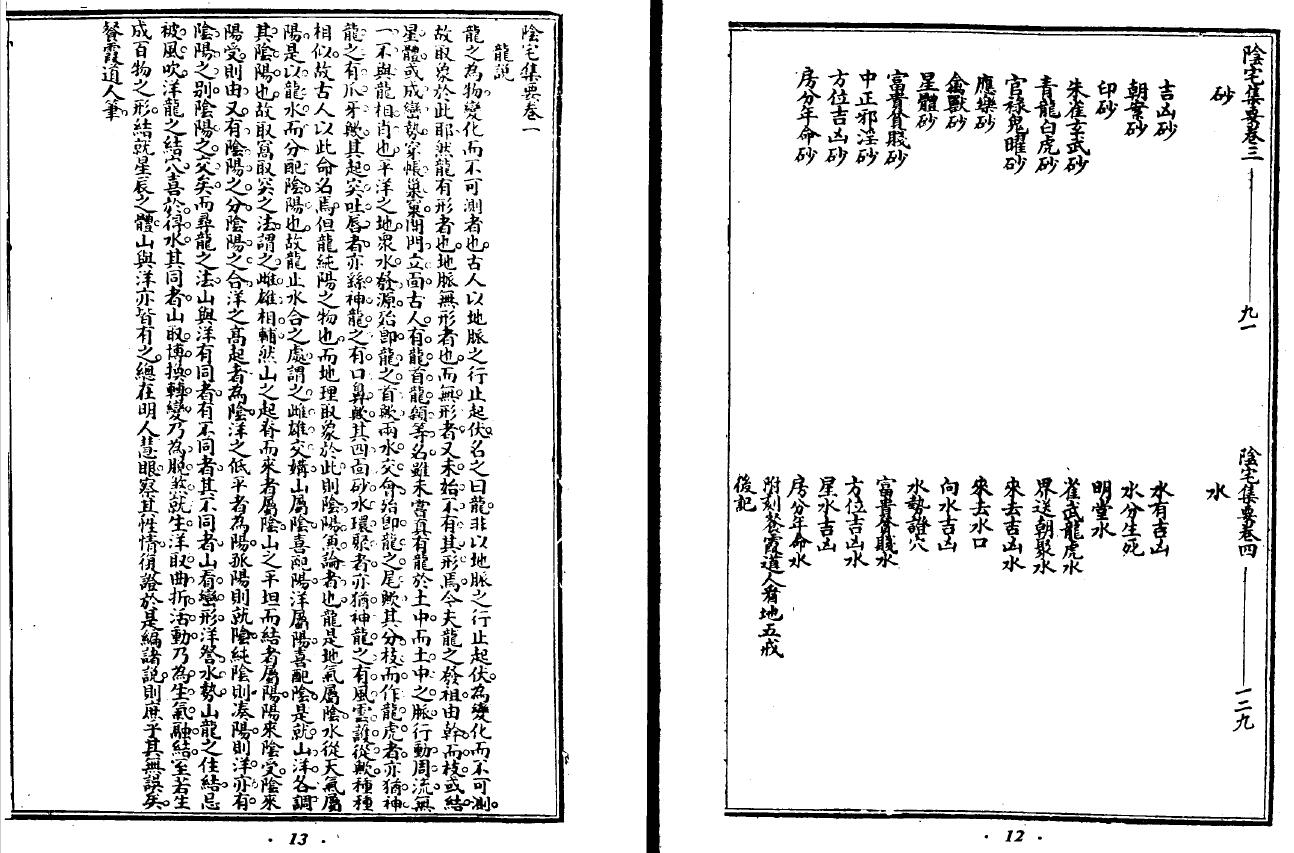 陰宅集要卷三 九一
砂
吉凶砂
朝案砂
印砂
朱雀玄武砂
青龍白虎砂
官祿鬼曜砂
應變砂
禽獸砂
星體砂
富貴貧賤砂
中正邪淫砂
方位吉凶砂
房分年命砂
陰宅集要卷四 一二九
水
水有吉凶
水分生死
明堂水
雀武龍虎水
界送朝聚水
來去吉凶水
來去水口
向水吉凶
水勢證穴
富貴貧賤水
方位吉凶水
星水吉凶
房分年命水
附刻餐霞道人看地五戒
後記
· 12 ·
陰宅集要卷一
龍説
龍之為物變化而不可測者也。古人以地脈之行止起伏名之曰龍。非以地脈之行止起伏。為變化而不可測。
故取象於此耶。然龍有形者也。地脈無形者也。而無形者又未始不有其形焉。今夫龍之發祖。由幹而枝。或結
星體。或成巒勢。穿帳巢窠。開門立面。古人有龍首龍額等名。雖未嘗真有龍於土中。而土中之脈。行動周流。無
一不與龍相肖也。平洋之地。衆水發源。殆即龍之首歟。兩水交會。殆即龍之尾歟。其分枝而作龍虎者。亦猶神
龍之有爪牙歟。其起突吐唇者。亦繇神龍之有口鼻歟。其四面砂水環聚者。亦猶神龍之有風雲護從歟。種種
相似。故古人以此命名焉。但龍純陽之物也。而地理取象於此。則陰陽須論者也。龍是地氣屬陰。水從天氣屬
陽。是以龍水而分配陰陽也。故龍止水合之處。謂之雌雄交媾。山屬陰喜配陽。洋屬陽喜配陰。是就山洋各調
其陰陽也。故取窩取突之法。謂之雌雄相輔。然山之起脊而來者屬陰。山之平坦而結者屬陽。陽來陰受。陰來
陽受。則由又有陰陽之分。陰陽之合。洋之高起者為陰。洋之低平者為陽。孤陽則就陰。純陰則湊陽。則洋亦有
陰陽之別。陰陽之交矣。而尋龍之法。山與洋有同者。有不同者。其不同者。山看巒形。洋詧水勢。山龍之住結。忌
被風吹。洋龍之結穴。喜於得水。其同者。山取博換轉變。乃為脫煞就生。洋取曲折活動。乃為生氣融結。至若生
成百物之形。結就星辰之體。山與洋亦皆有之。總在明人慧眼。察其性情。復證於是編諸説。則庶乎其無誤矣。
餐霞道人筆。
· 13 ·